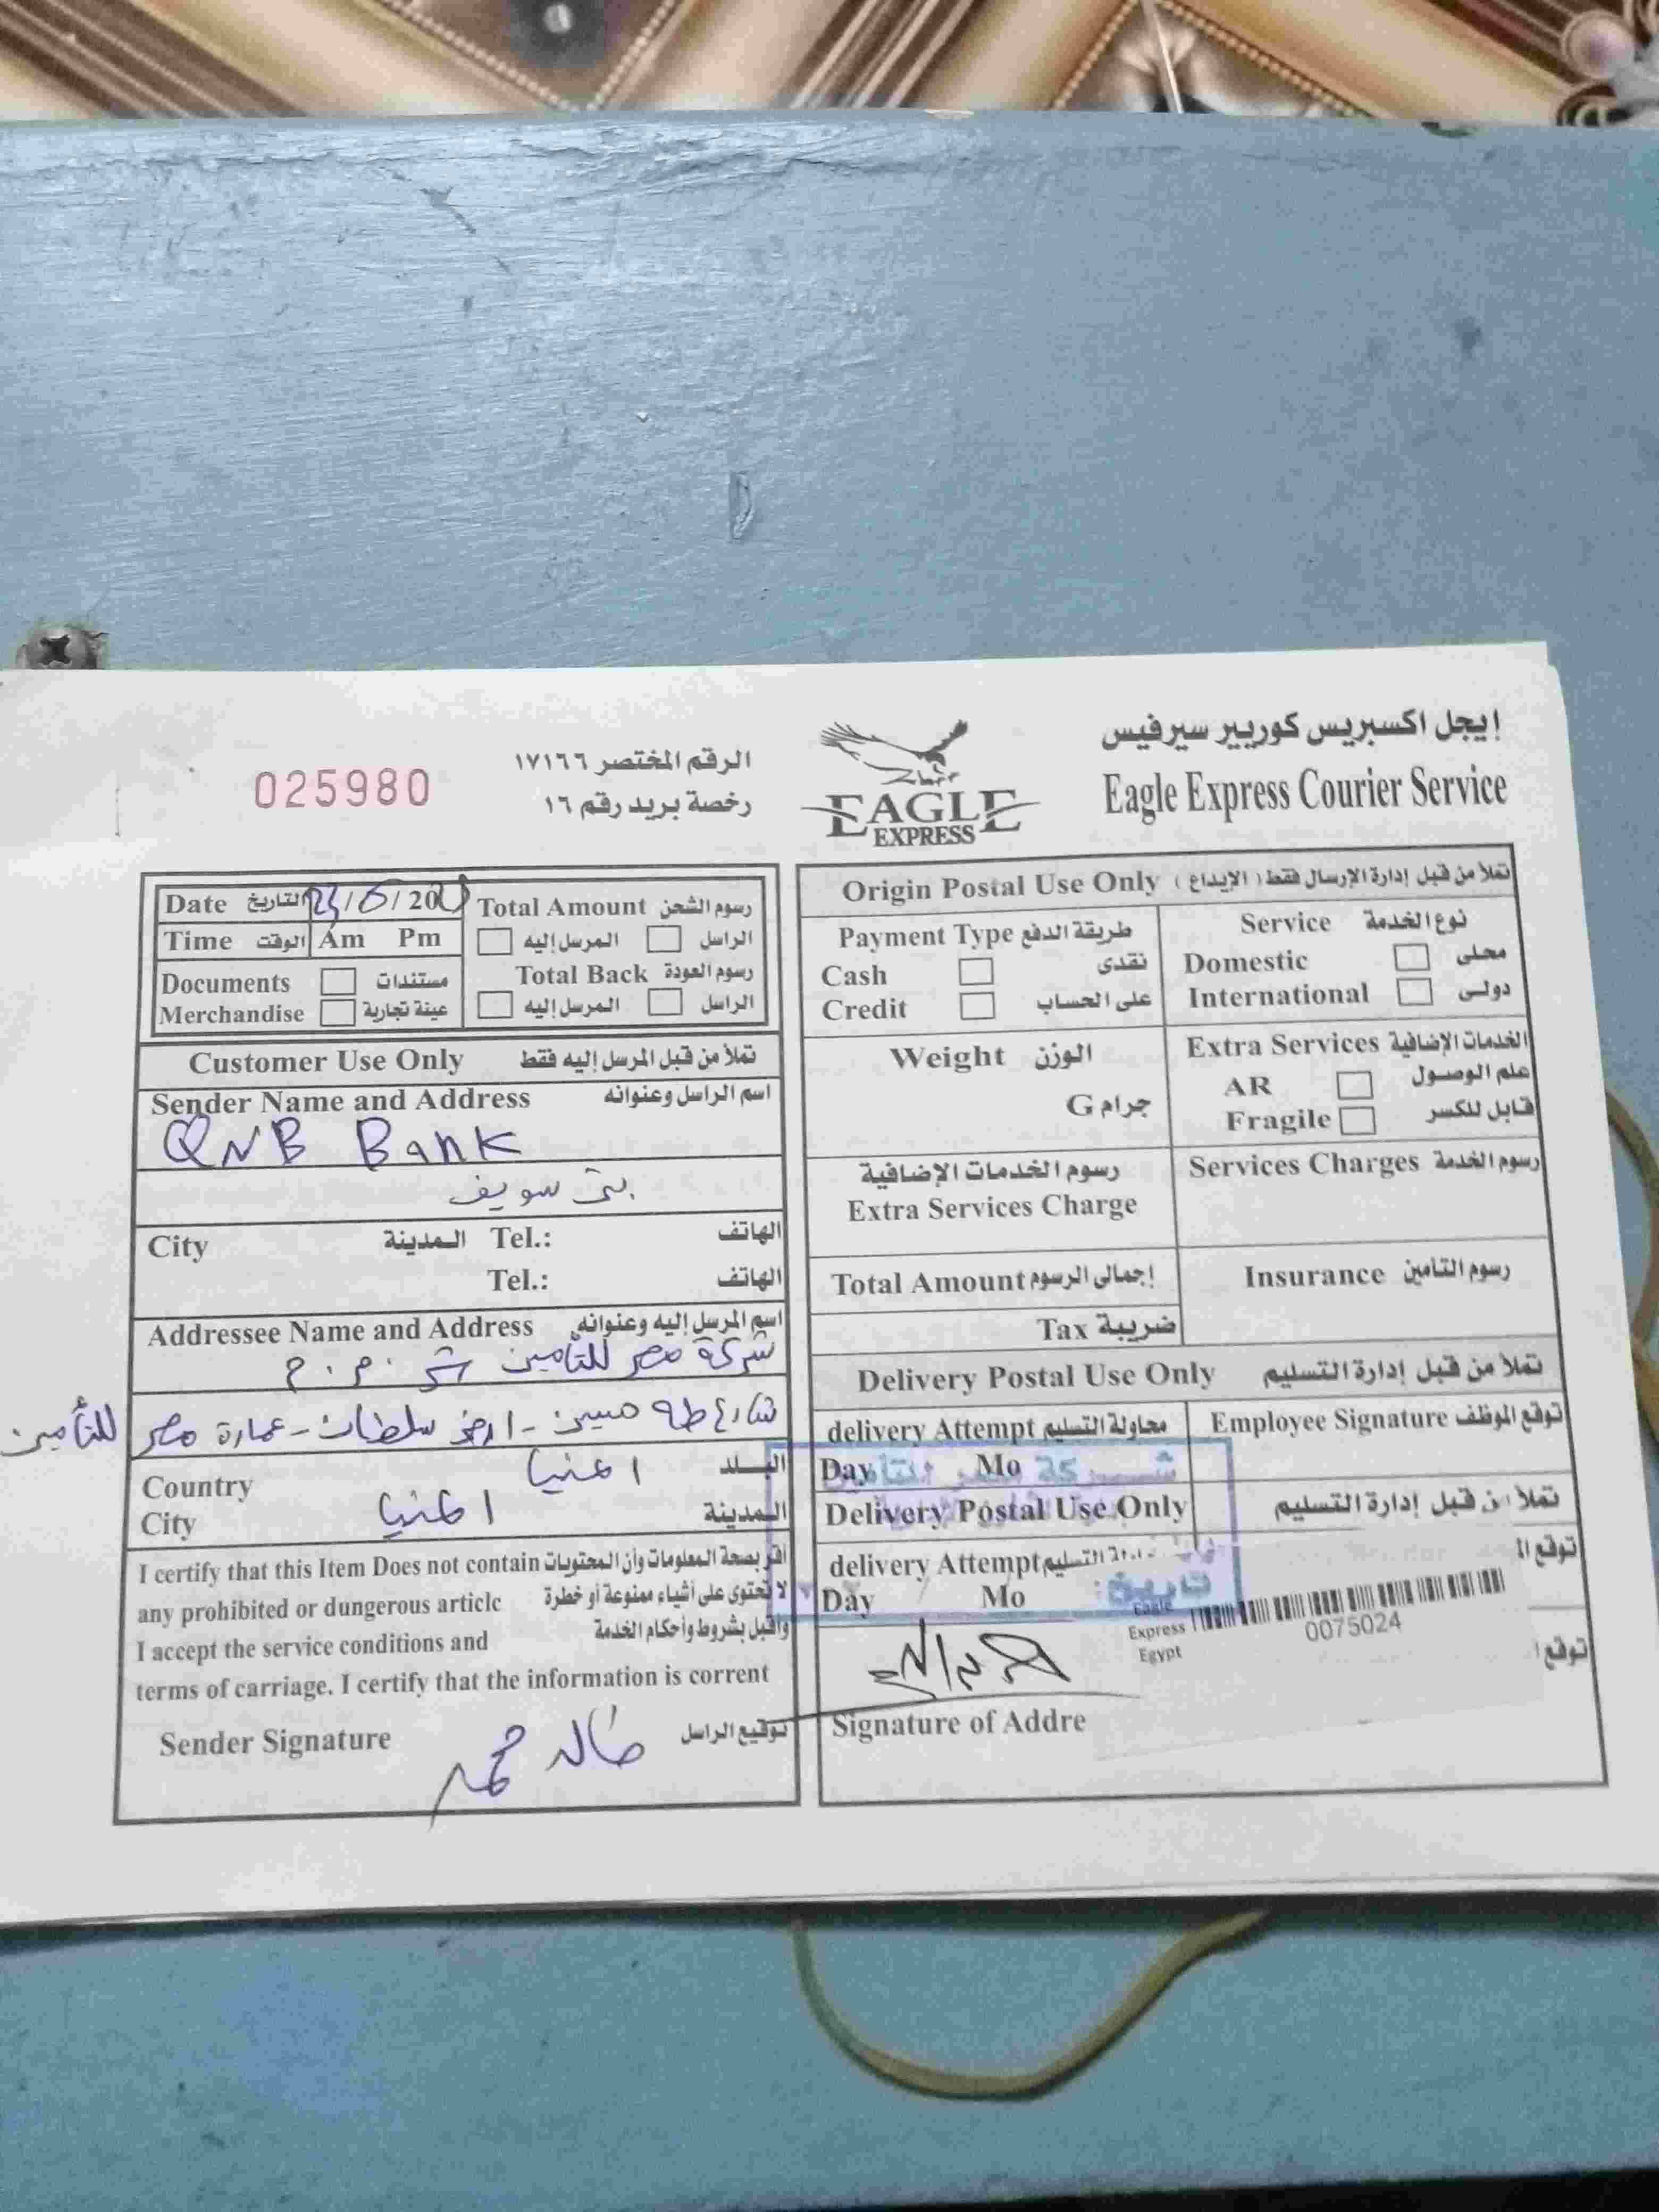 025980
الرقم المختصر ١٧١٦٦
رخصة بريد رقم ١٦
EAGLE
EXPRESS
إيجل اكسبريس كوريير سيرفيس
Eagle Express Courier Service
Date التاريخ / / 20
Total Amount رسوم الشحن
Time الوقت Am Pm
المرسل إليه الراسل
Documents مستندات
Total Back رسوم العودة
Merchandise عينة تجارية
المرسل إليه الراسل
Customer Use Only تملأ من قبل المرسل إليه فقط
Sender Name and Address اسم الراسل وعنوانه
QNB Bank
بنى سويف
City المدينة Tel.: الهاتف
Tel.: الهاتف
Addressee Name and Address اسم المرسل إليه وعنوانه
شركة مصر للتأمين ش.م.م
شارع طه حسين - ارض سلطان - عمارة مصر للتأمين
Country المنيا البلد
City المنيا المدينة
I certify that this Item Does not contain أقر بصحة المعلومات وأن المحتويات
any prohibited or dangerous article لا تحتوى على أشياء ممنوعة أو خطرة
I accept the service conditions and وأقبل بشروط وأحكام الخدمة
terms of carriage. I certify that the information is corrent
Sender Signature توقيع الراسل
خالد محمد
Origin Postal Use Only تملأ من قبل إدارة الإرسال فقط ( الإيداع )
Payment Type طريقة الدفع
Service نوع الخدمة
Cash نقدى
Domestic محلى
Credit على الحساب
International دولى
Weight الوزن
Extra Services الخدمات الإضافية
G جرام
AR علم الوصول
Fragile قابل للكسر
رسوم الخدمات الإضافية
Extra Services Charge
Services Charges رسوم الخدمة
Total Amount إجمالى الرسوم
Insurance رسوم التأمين
Tax ضريبة
Delivery Postal Use Only تملأ من قبل إدارة التسليم
delivery Attempt محاولة التسليم
Employee Signature توقع الموظف
Day Mo
Delivery Postal Use Only تملأ من قبل إدارة التسليم
delivery Attempt التسليم
توقع الم
Day Mo
تاريخ:
Eagle
Express
Egypt
0075024
توقع ا
Signature of Addre